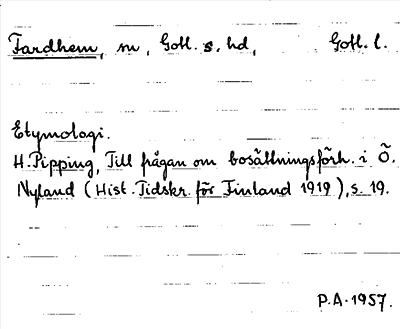 Fardhem, sn, Gotl. s. hd, Gotl. l.
Etymologi.
H. Pipping, Till frågan om bosättningsförh. i Ö.
Nyland (Hist. Tidskr. för Finland 1919), s. 19.
P.A. 1957.